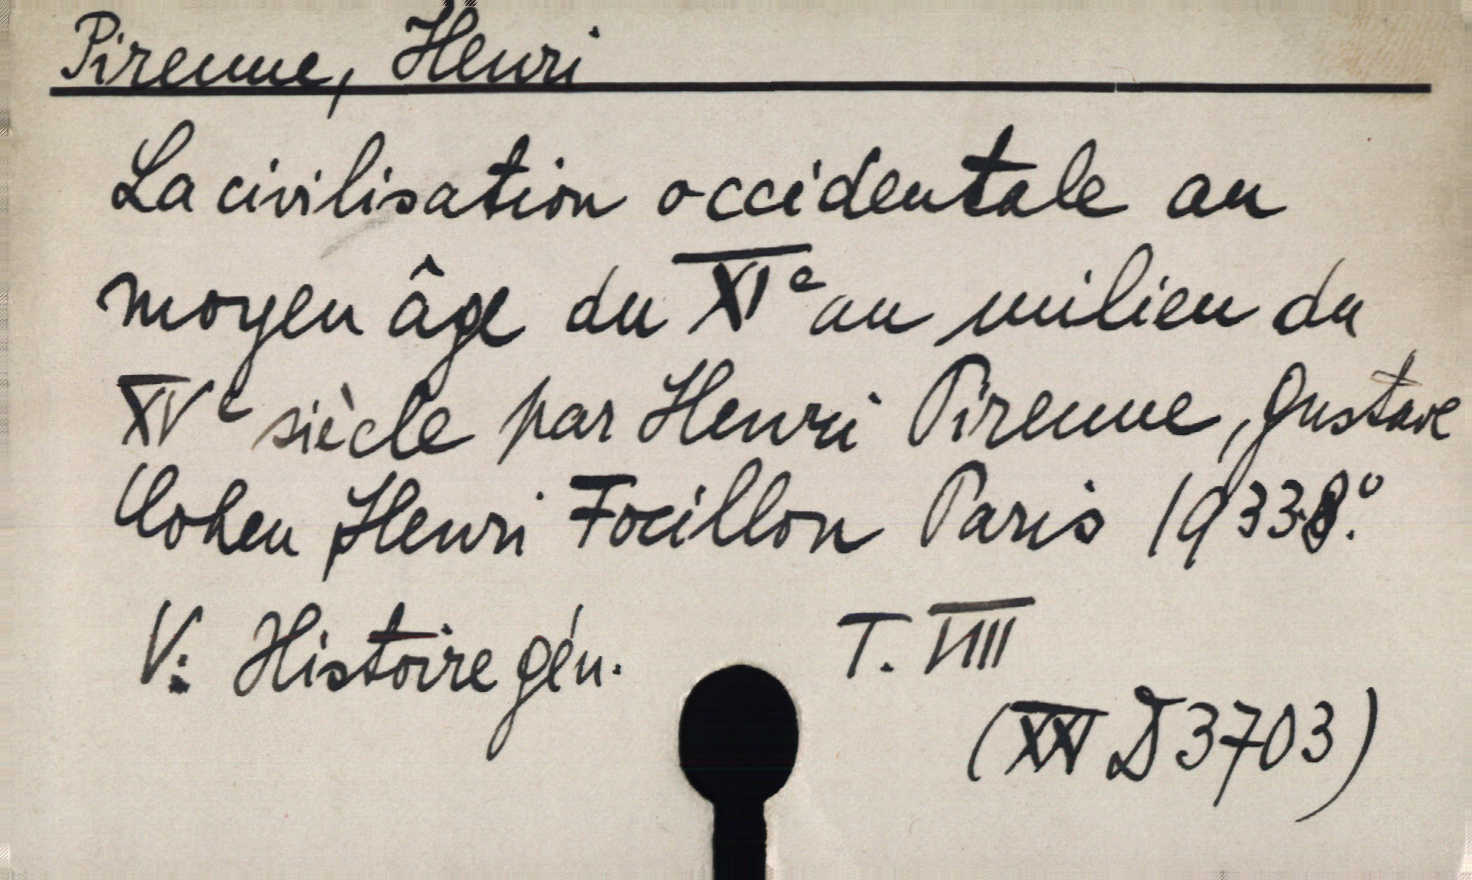 Pirenne, Henri
La civilisation occidentale au
moyen âge du XIe au milieu du
XVe siècle par Henri Pirenne, Gustave
Cohen Henri Focillon Paris 1933 8.º
V: Histoire gén. T. VIII
(XXV D 3703)